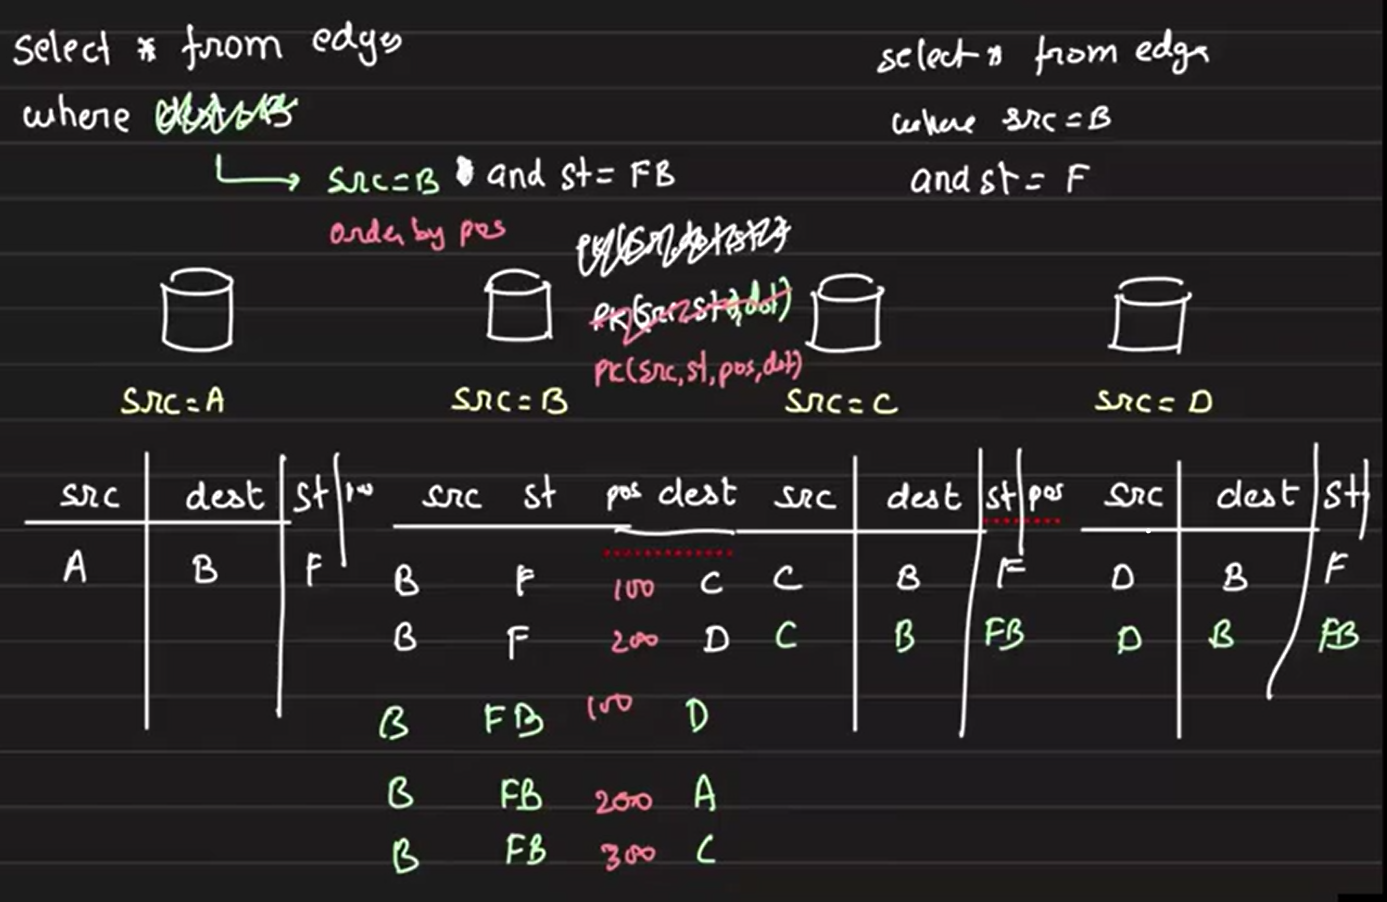 select * from edges
where
src=B and st= FB
order by pos
select * from edges
where src=B
and st= F
PK(src,st,dst)
PK(src,st,pos,dst)
src=A
src=B
src=C
src=D
src dest st
A B F
src st pos dest
B F 100 C
B F 200 D
B FB 100 D
B FB 200 A
B FB 300 C
src dest st pos
C B F
C B FB
src dest st
D B F
D B FB